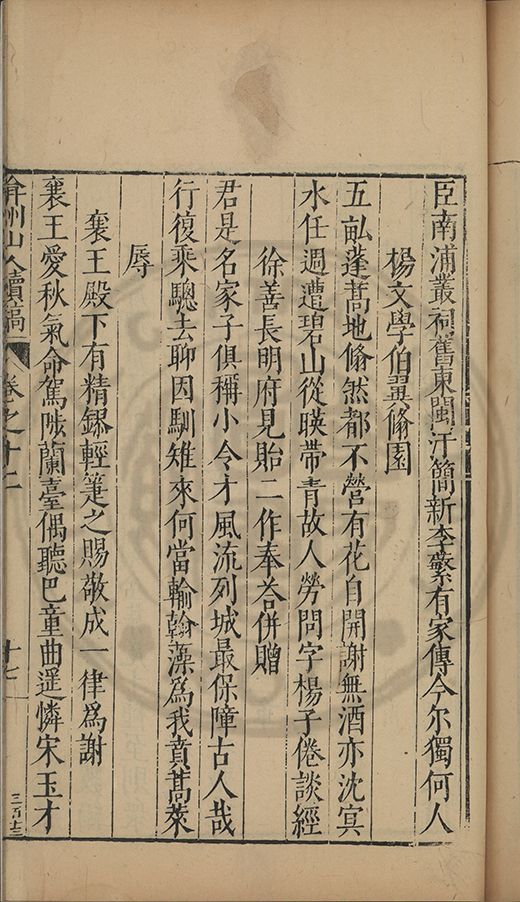 臣南浦叢祠舊東閩汗簡新李繁有家傳今尔獨何人
楊文學伯翼翛園
五畝蓬蒿地翛然都不營有花自開謝無酒亦沈冥
水任週遭碧山從暎帶青故人勞問字楊子倦談經
徐善長明府見貽二作奉荅併贈
君是名家子俱稱小令才風流列城最保障古人哉
行復乘驄去聊因馴雉來何當輸翰藻爲我賁蒿萊
辱
襄王殿下有精鏐輕箑之賜敬成一律爲謝
襄王愛秋氣命駕陟蘭臺偶聽巴童曲遥憐宋玉才
弇州山人續稿
卷之十二
十七
三百十三